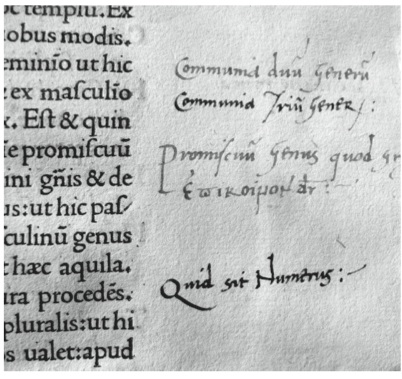 oc templũ. Ex
obus modis.
eminio ut hic
ex maſculĩo
. Eſt & quin
ſe promiſcuũ
ini gñis & de
us:ut hic paſ
culinũ genus
t hæc aquila.
ura procedẽs.
pluralis:ut hi
s ualet:apud
Communia duũ generũ
Communia Triũ Gener :
Promiſcuũ genus quod gr
dr :
Quid sit Numerus :